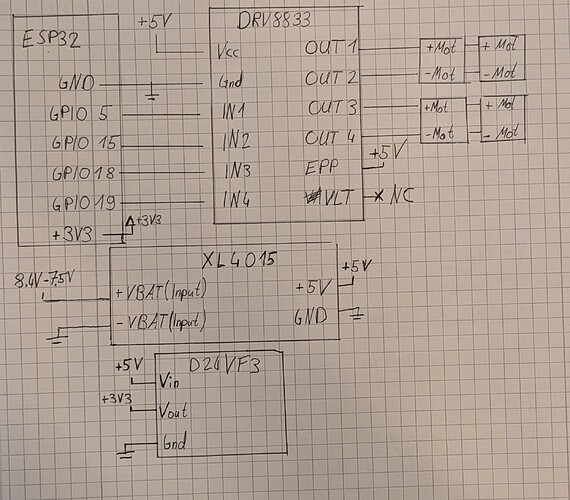 ESP32
GND
GPIO 5
GPIO 15
GPIO 18
GPIO 19
+3V3
+3V3
+5V
DRV8833
Vcc
Gnd
IN1
IN2
IN3
IN4
OUT 1
OUT 2
OUT 3
OUT 4
EPP
+5V
VLT
NC
+Mot
-Mot
+Mot
-Mot
+Mot
-Mot
+Mot
-Mot
XL4015
8.4V-7.5V
+VBAT(Input)
-VBAT(Input)
+5V
GND
+5V
D24VF3
+5V
Vin
+3V3
Vout
Gnd